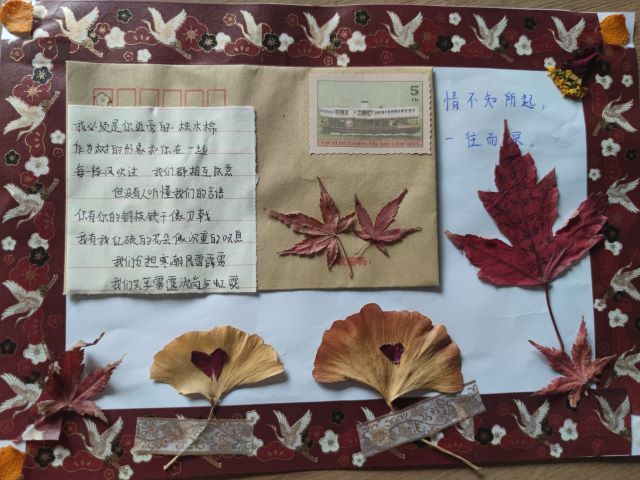 我必须是你近旁的一株木棉
作为树的形象和你在一起
每一阵风吹过 我们都相互致意
但没有人听懂我们的言语
你有你的铜枝铁干像刀戟
我有我红硕的花朵像沉重的叹息
我们分担寒潮风雷霹雳
我们共享雾霭流岚与虹霓
5
情不知所起，
一往而深。